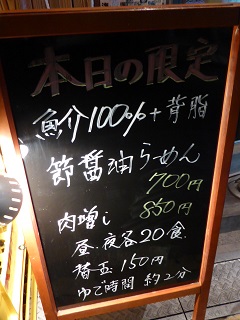 本日の限定
魚介100%+背脂
節醤油らーめん
700円
肉増し 850円
昼、夜各20食
替玉150円
ゆで時間 約2分